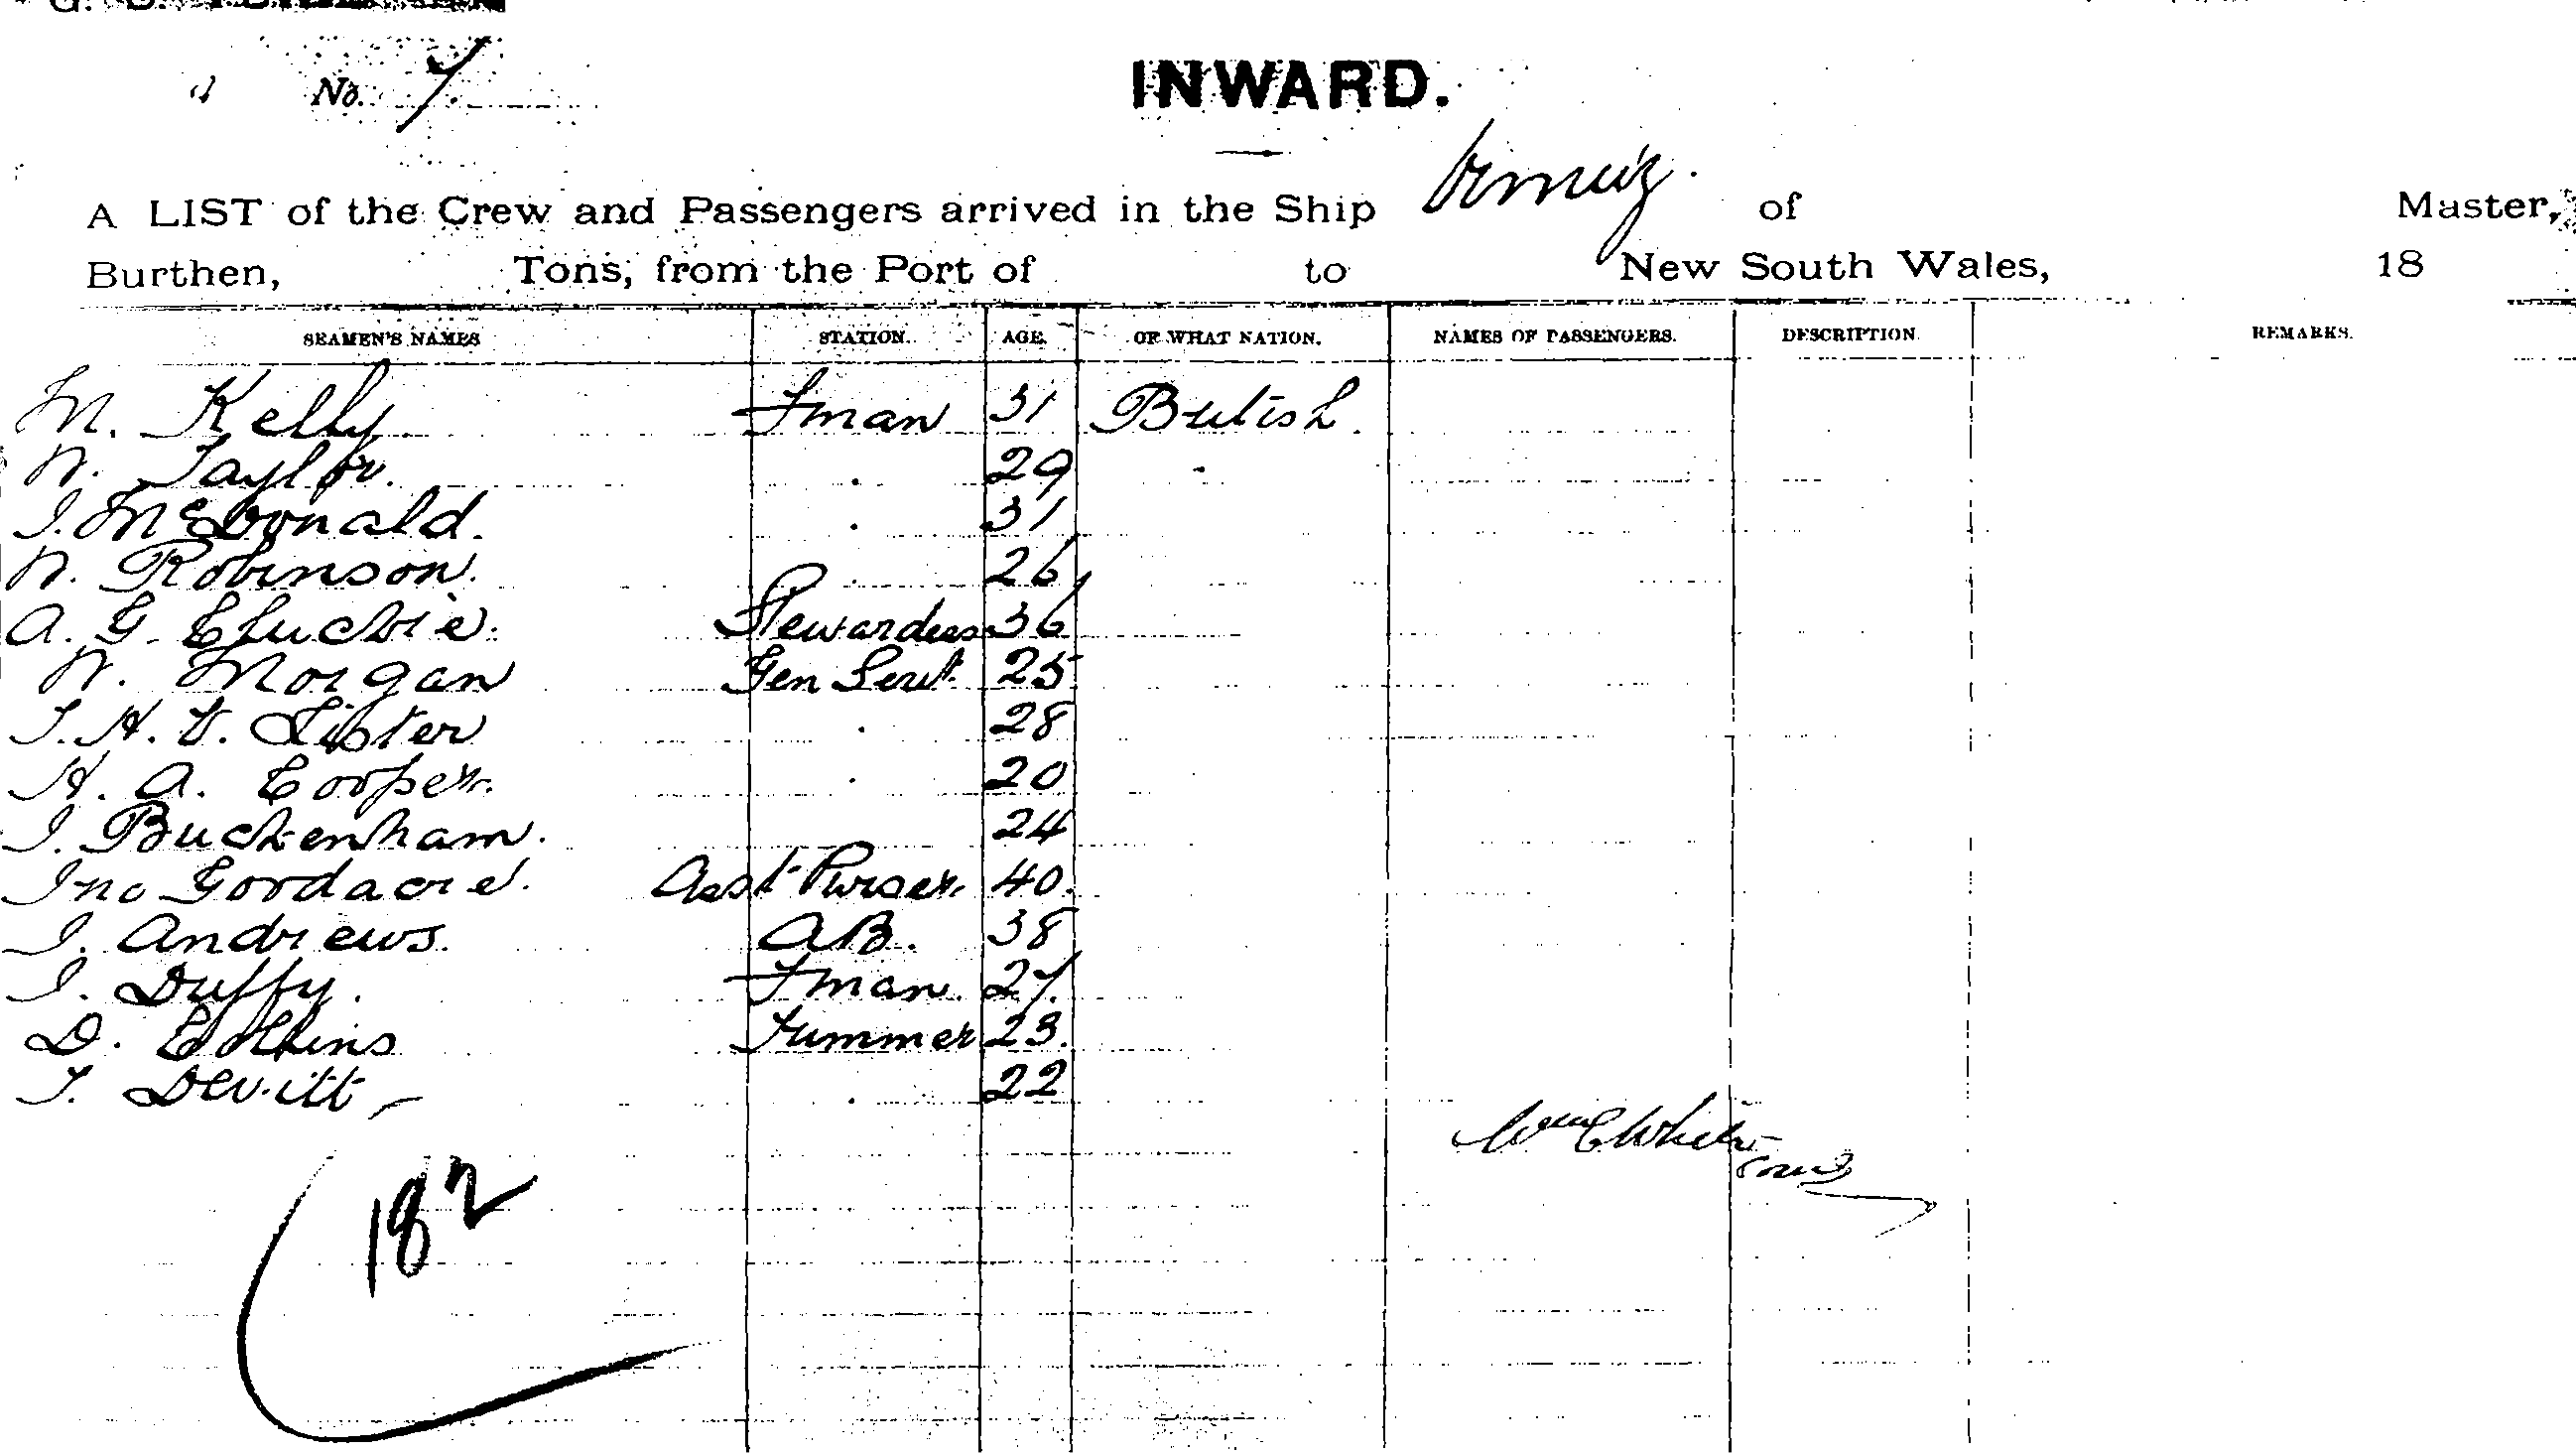 No. 7
INWARD.
A LIST of the Crew and Passengers arrived in the Ship Ormuz. of Master,
Burthen, Tons, from the Port of to New South Wales, 18
SEAMEN'S NAMES STATION. AGE. OF WHAT NATION. NAMES OF PASSENGERS. DESCRIPTION. REMARKS.
M. Kelly. Fman 31 British.
W. Taylor. . 29 "
J. McDonald. . 31
W. Robinson. . 26
A. G. Stewardess 36
W. Morgan Gen Servt. 25
T. H. V. Lister . 28
H. A. Cooper. . 20
J. Buckenham. 24
Jno Goodacre. Asst Purser. 40.
J. Andrews. A.B. 38
J. Duffy. Fman. 27.
D. Collins Trimmer 23.
T. Devitt . 22
182